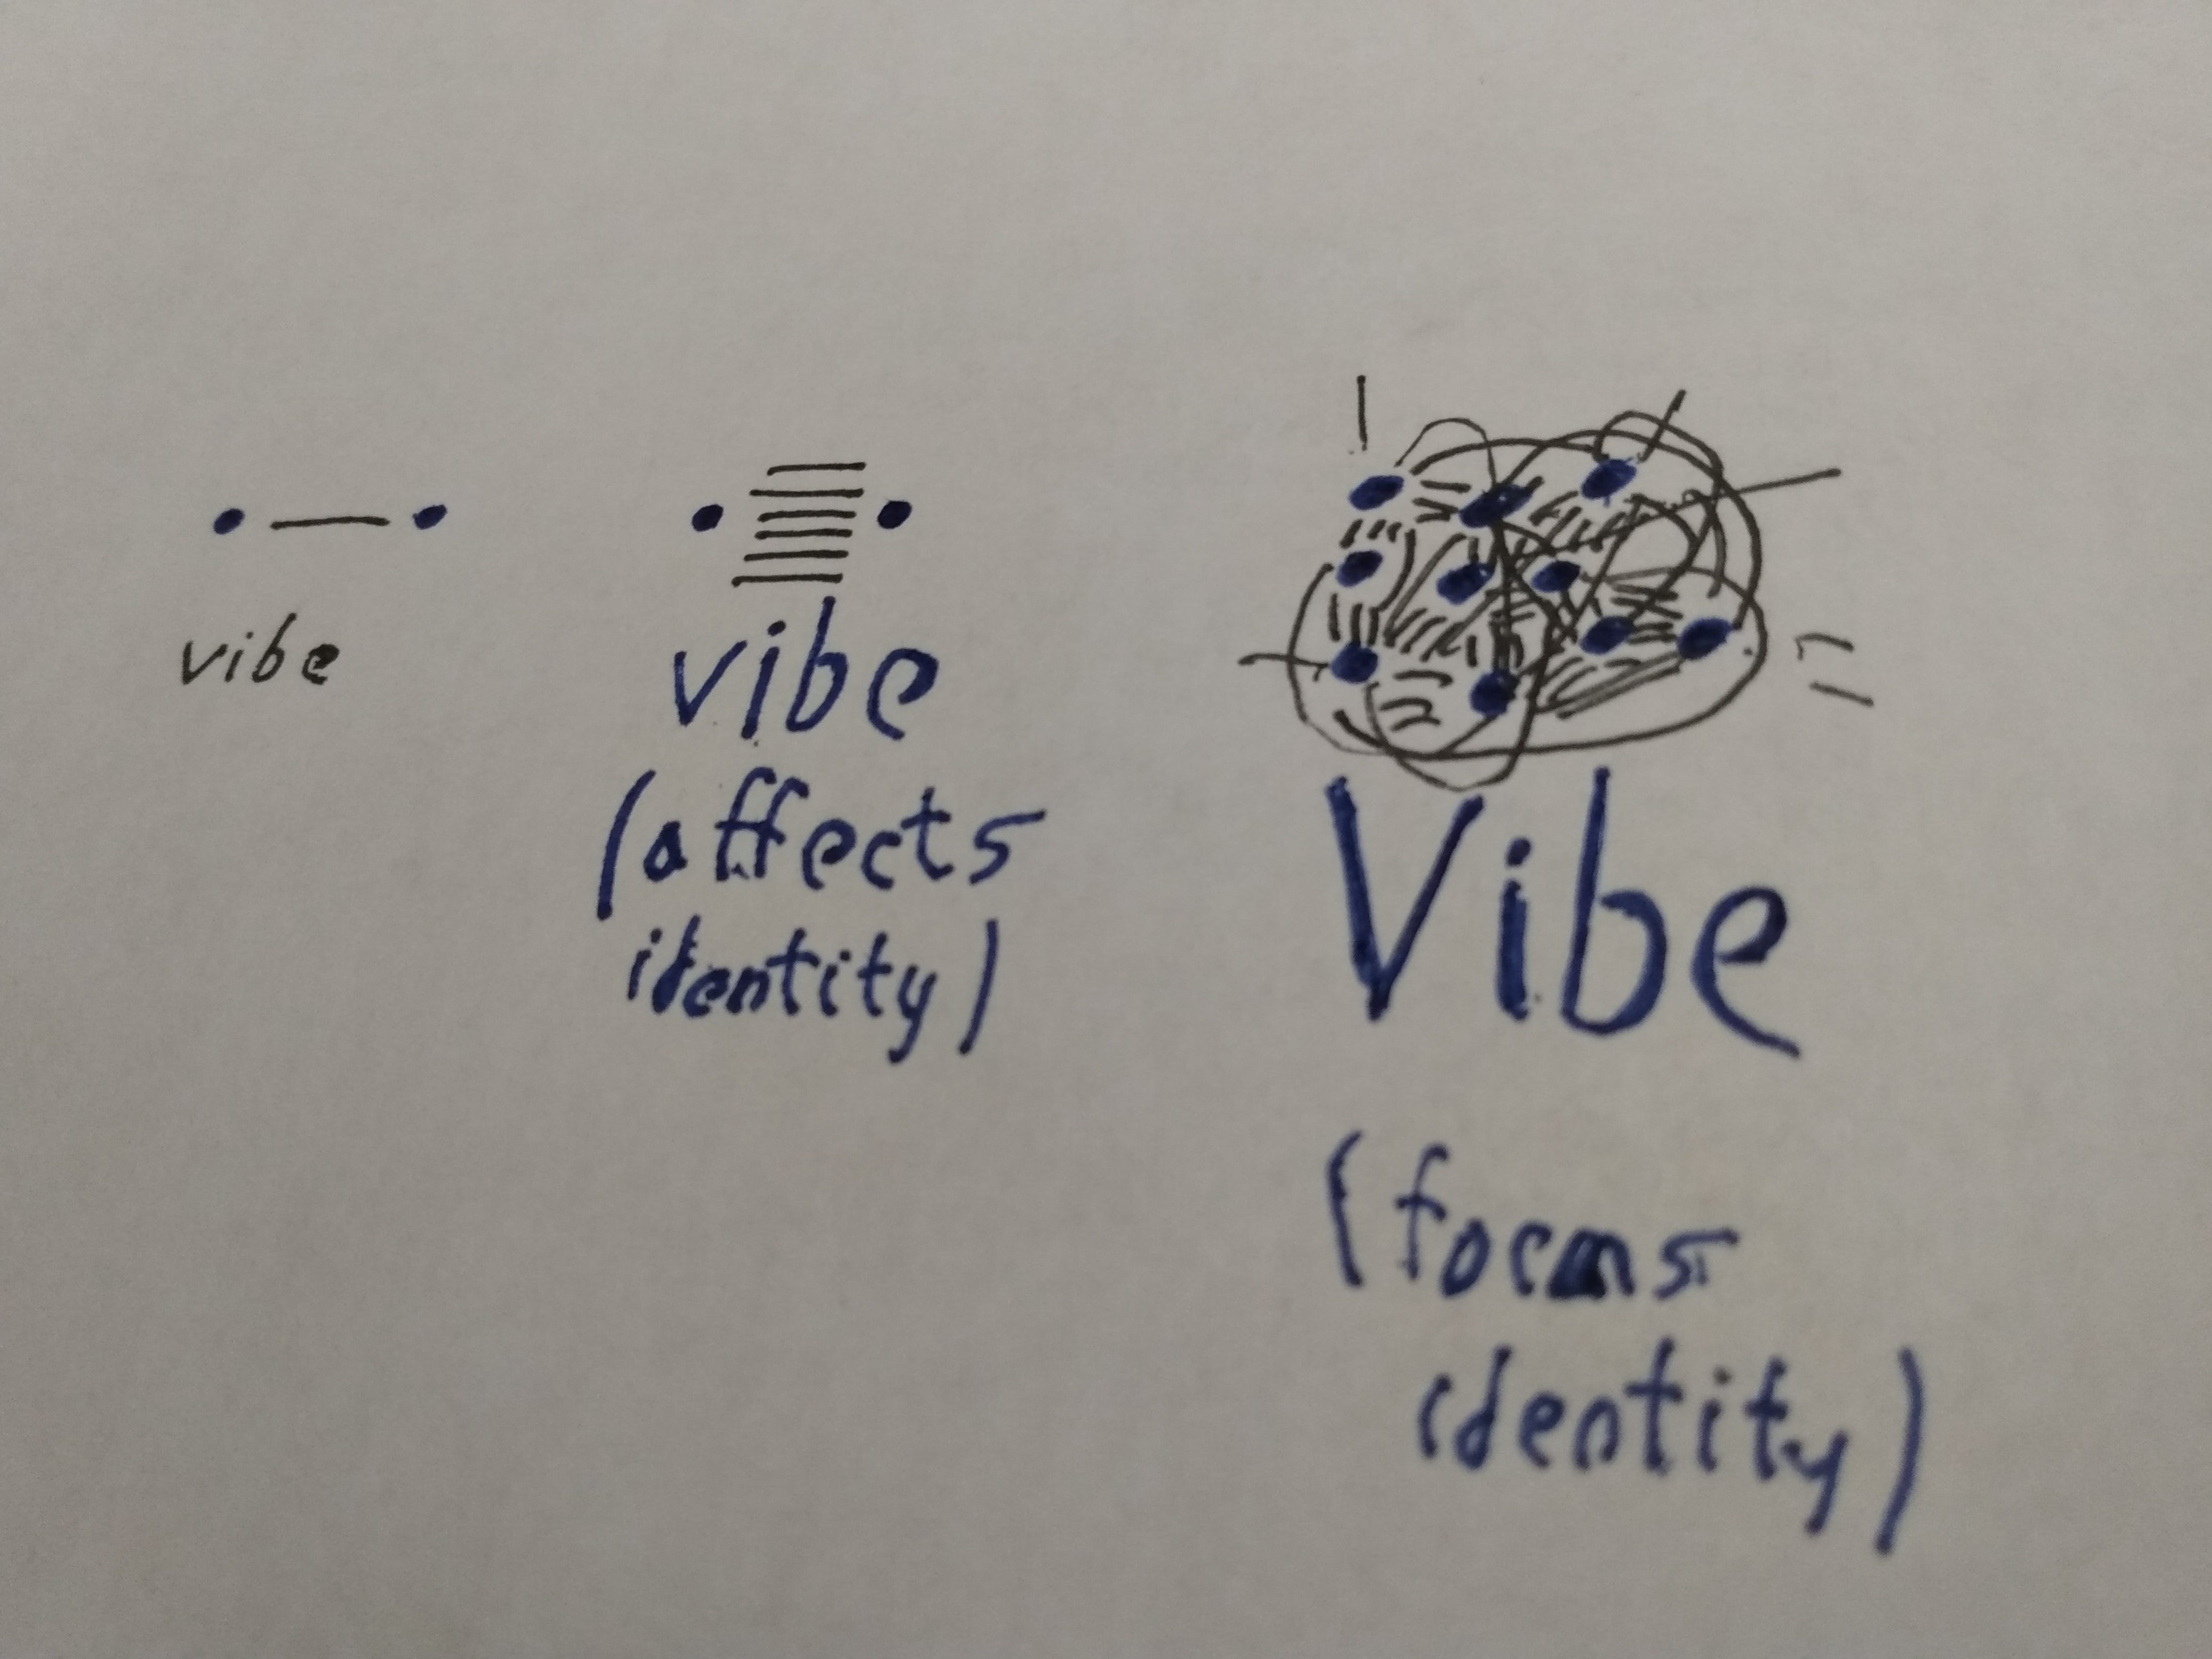 vibe
vibe
(affects
identity)
Vibe
(forms
identity)